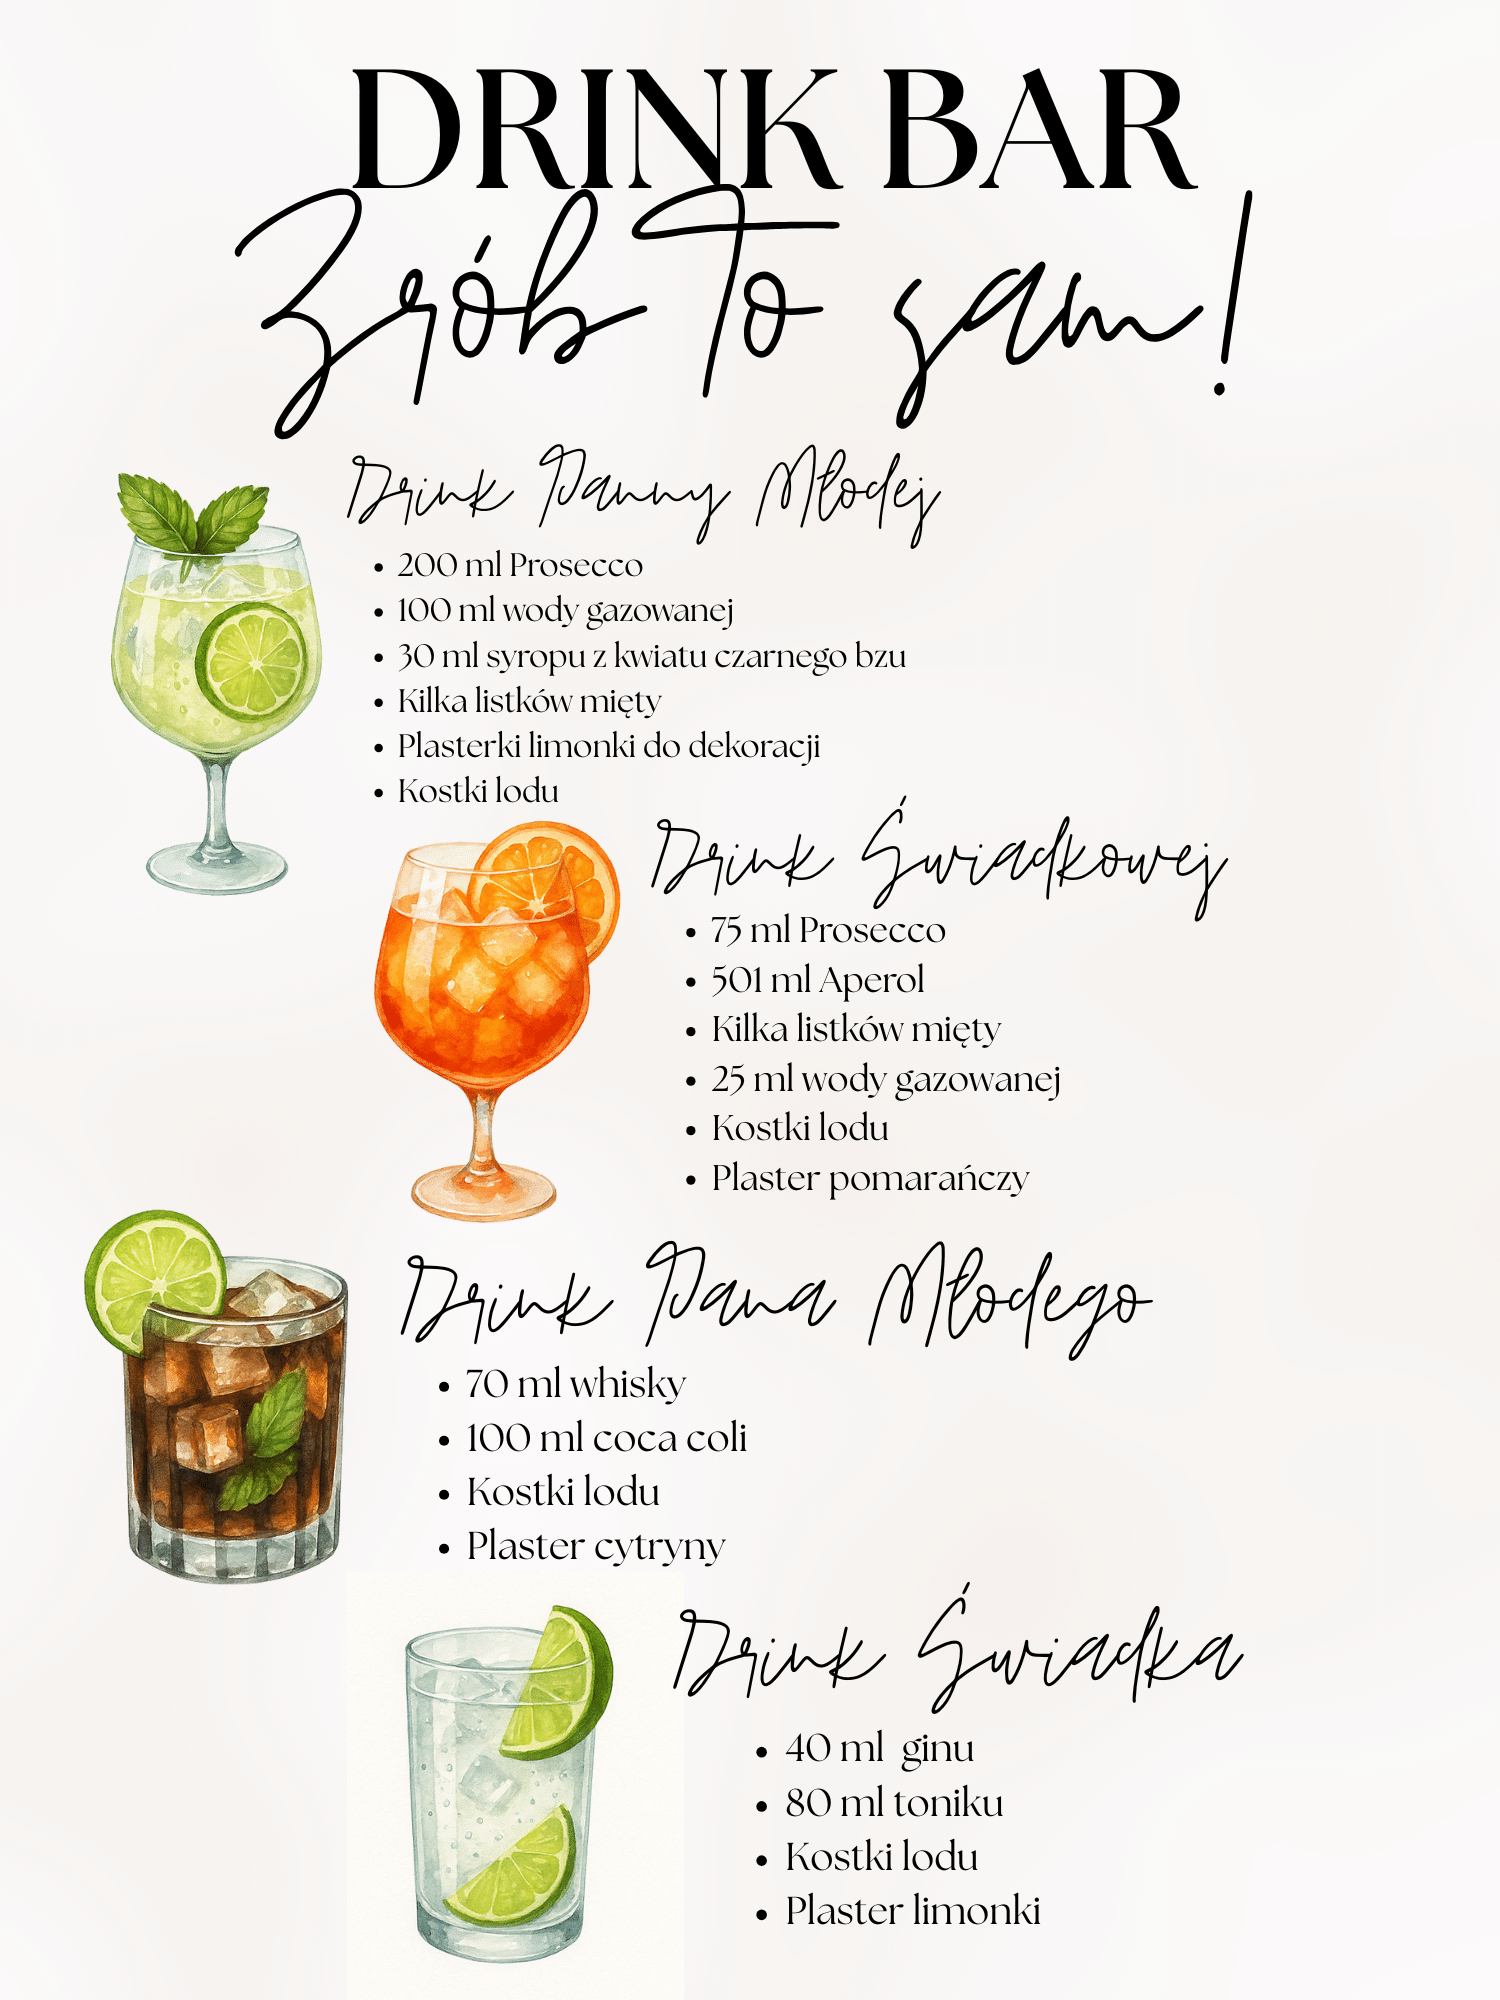 DRINK BAR
Zrób To sam!
Drink Panny Młodej
• 200 ml Prosecco
• 100 ml wody gazowanej
• 30 ml syropu z kwiatu czarnego bzu
• Kilka listków mięty
• Plasterki limonki do dekoracji
• Kostki lodu
Drink Świadkowej
• 75 ml Prosecco
• 501 ml Aperol
• Kilka listków mięty
• 25 ml wody gazowanej
• Kostki lodu
• Plaster pomarańczy
Drink Pana Młodego
• 70 ml whisky
• 100 ml coca coli
• Kostki lodu
• Plaster cytryny
Drink Świadka
• 40 ml  ginu
• 80 ml toniku
• Kostki lodu
• Plaster limonki